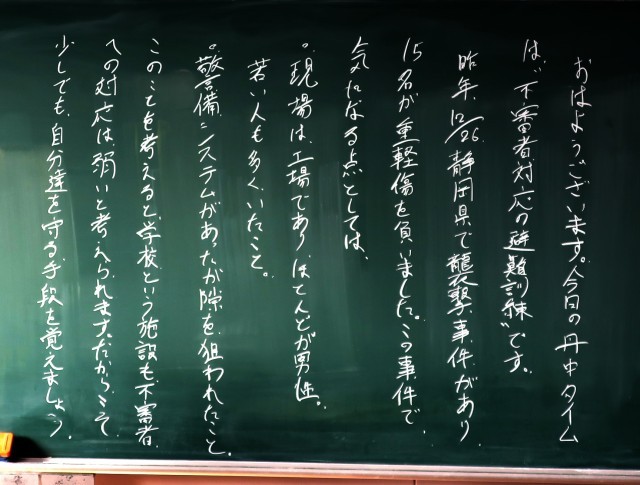 おはようございます。今日の丹中タイム
は、"不審者対応の避難訓練"です。
昨年、12/26 静岡県で襲撃事件があり、
15名が重軽傷を負いました。この事件で、
気になる点としては、
・現場は、工場であり、ほとんどが男性。
若い人も多くいたこと。
・警備システムがあったが隙を狙われたこと。
このことを考えると、学校という施設も不審者
への対応は弱いと考えられます。だからこそ
少しでも、自分達を守る手段を覚えましょう。